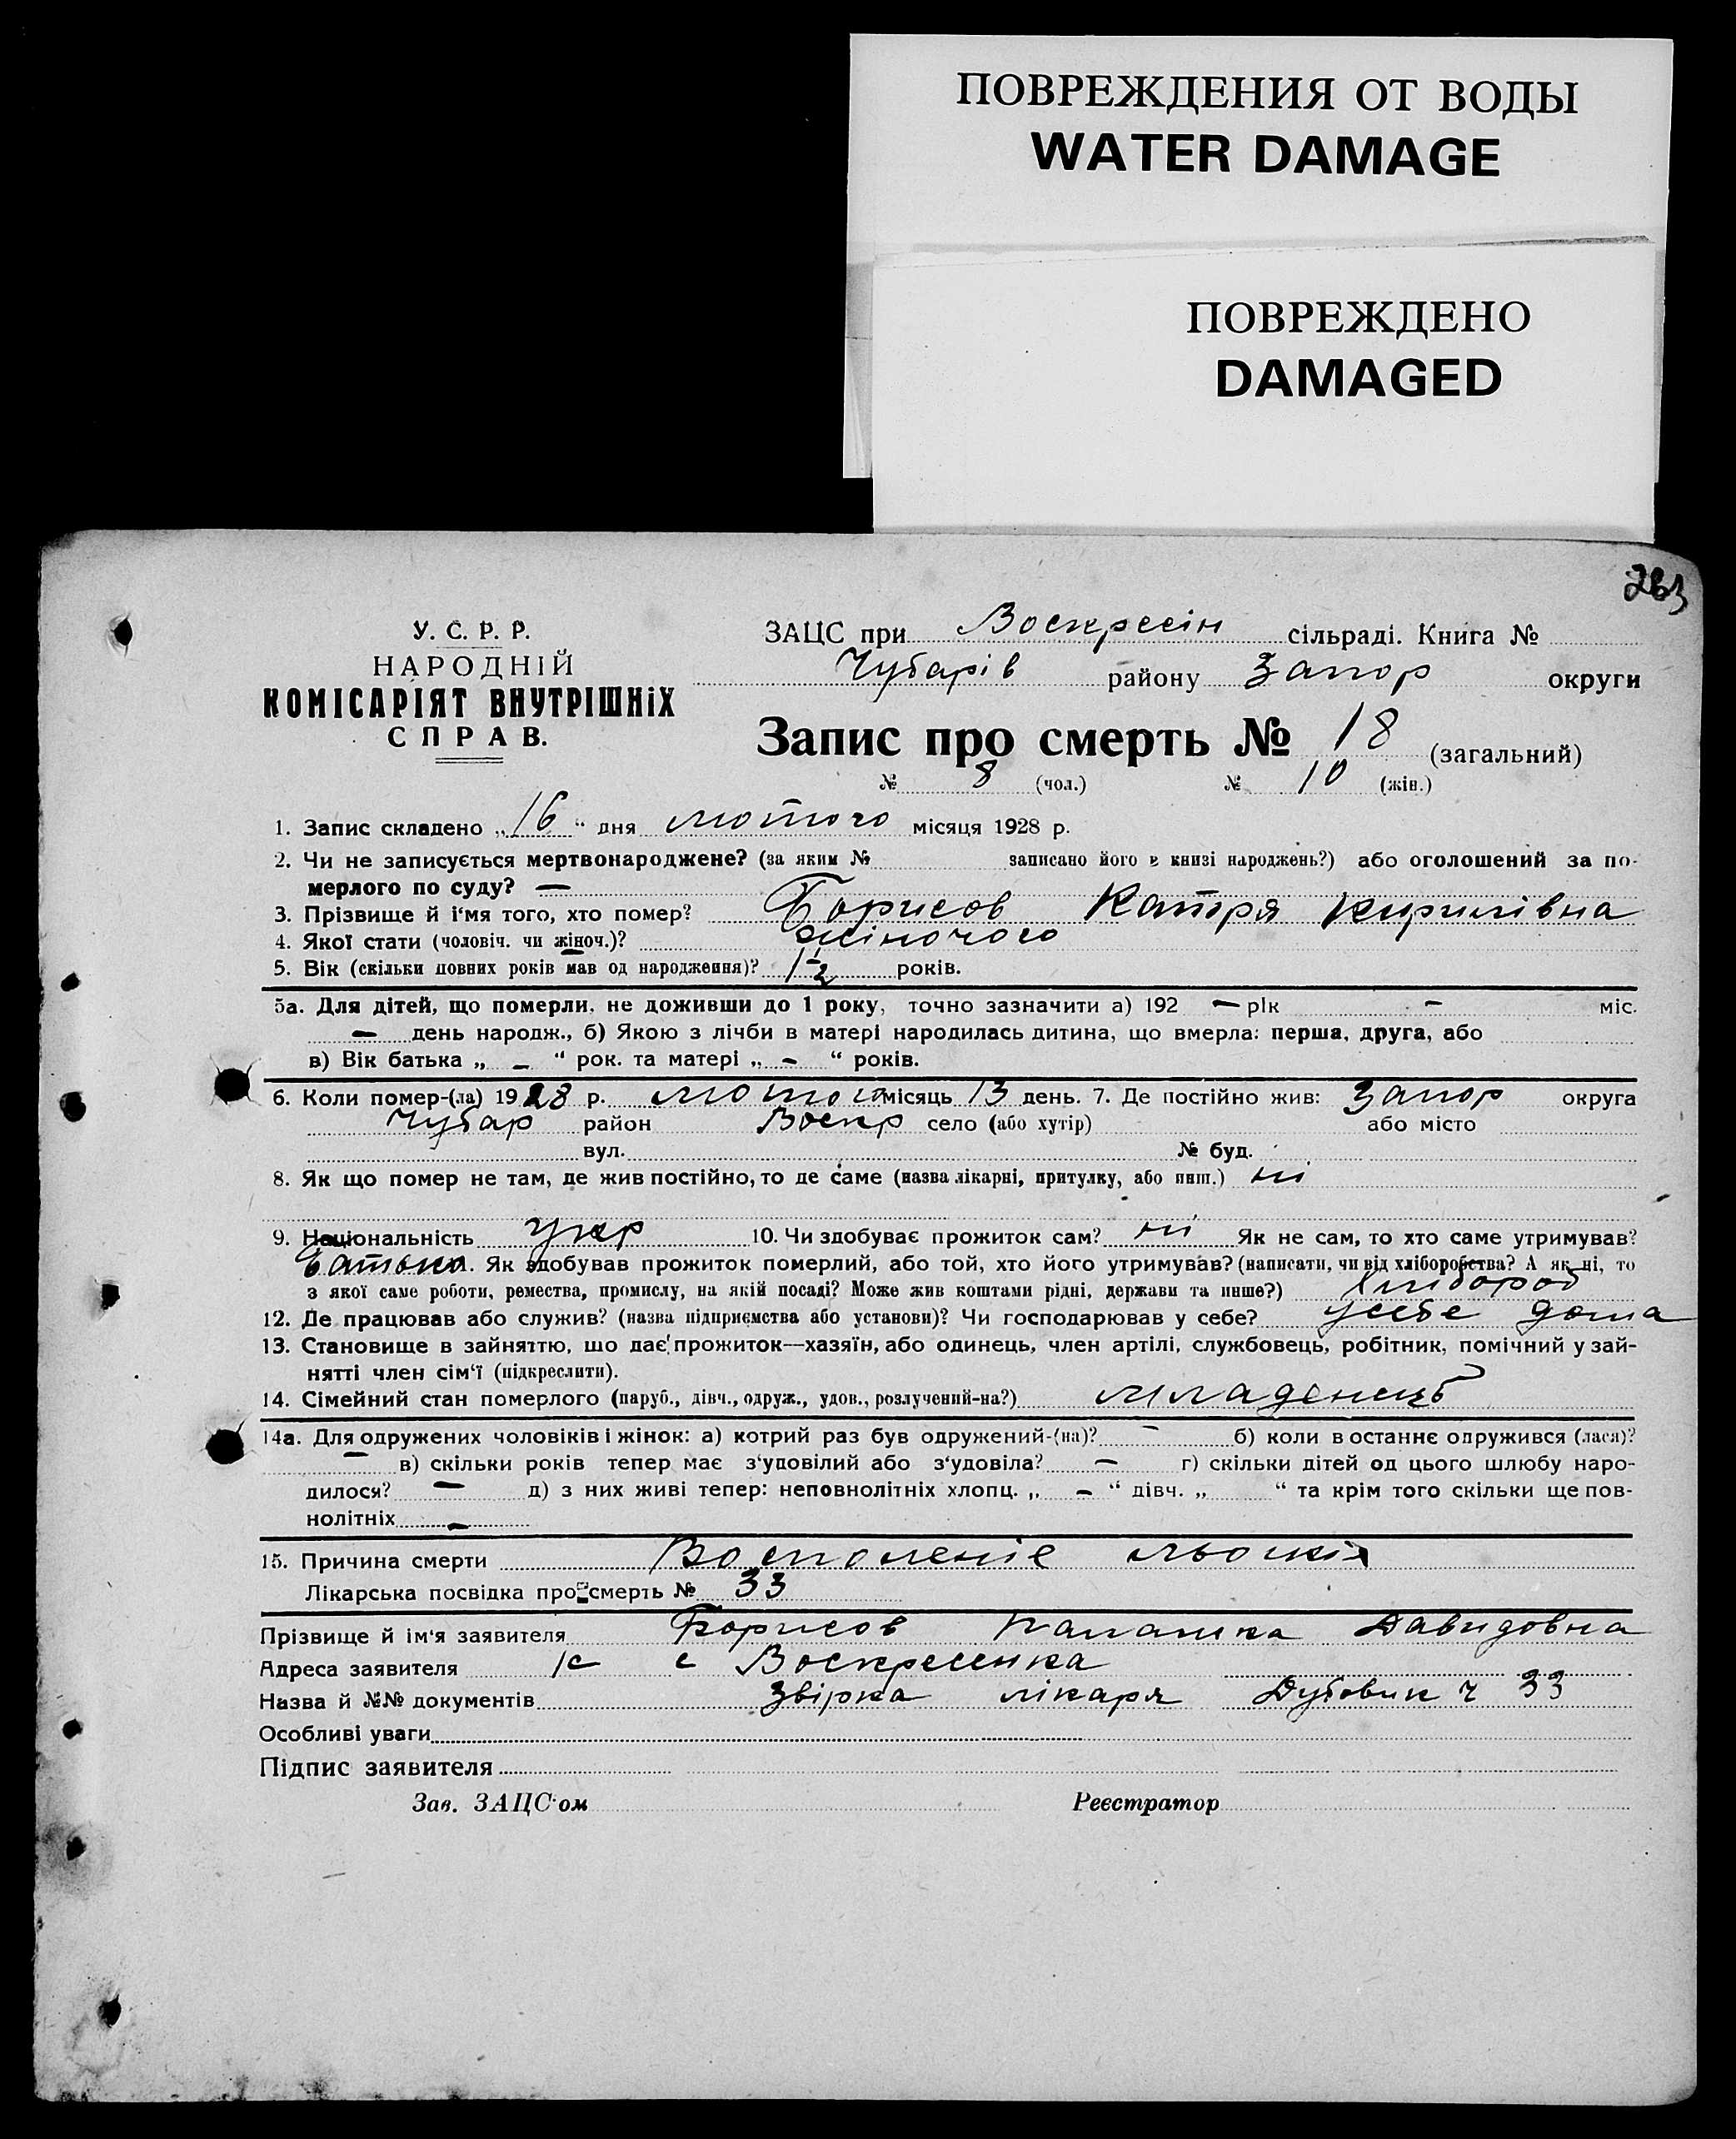 ПОВРЕЖДЕНИЯ ОТ ВОДЫ
WATER DAMAGE
ПОВРЕЖДЕНО
DAMAGED
263
У. С. Р. Р.
НАРОДНІЙ
КОМІСАРІЯТ ВНУТРІШНіХ
СПРАВ.
ЗАЦС при Воскресін сільраді. Книга №
Чубарів району Запор округи
Запис про смерть № 18 (загальний)
№ 8 (чол.) № 10 (жін.)
1. Запис складено „16“ дня лютого місяця 1928 р.
2. Чи не записується мертвонароджене? (за яким № записано його в книзі народжень?) або оголошений за по-
мерлого по суду? —
3. Прізвище й і'мя того, хто помер? Борисов Катря Кирилівна
4. Якої стати (чоловіч. чи жіноч.)? жіночого
5. Вік (скільки повних років мав од народження)? 1 1/2 років.
5а. Для дітей, що померли, не доживши до 1 року, точно зазначити а) 192 — рік - міс.
— день народж., б) Якою з лічби в матері народилась дитина, що вмерла: перша, друга, або
в) Вік батька „ - “ рок. та матері „ - “ років.
6. Коли помер-(ла) 1928 р. лютого місяць 13 день. 7. Де постійно жив: Запор округа
Чубар район Воскр село (або хутір) або місто
вул. № буд.
8. Як що помер не там, де жив постійно, то де саме (назва лікарні, притулку, або инш.) ні
9. Національність укр 10. Чи здобуває прожиток сам? ні Як не сам, то хто саме утримував?
батько. Як здобував прожиток померлий, або той, хто його утримував? (написати, чи від хліборобства? А як ні, то
з якої саме роботи, ремества, промислу, на якій посаді? Може жив коштами рідні, держави та инше?) Хлібороб
12. Де працював або служив? (назва підприємства або установи)? Чи господарював у себе? усебе дома
13. Становище в зайняттю, що дає прожиток—хазяїн, або одинець, член артілі, службовець, робітник, помічний у зай-
нятті член сім'ї (підкреслити).
14. Сімейний стан померлого (паруб., дівч., одруж., удов., розлучений-на?) младенець
14а. Для одружених чоловіків і жінок: а) котрий раз був одружений-(на)? — б) коли в останнє одружився (лася)?
— в) скільки років тепер має з'уповілий або з'удовіла? — г) скільки дітей од цього шлюбу наро-
дилося? — д) з них живі тепер: неповнолітніх хлопц. „ - “ дівч. „ “ та крім того скільки ще пов-
нолітніх -
15. Причина смерти Восполеніе льохкіх
Лікарська посвідка про смерть № 33
Прізвище й ім'я заявителя Борисов Палашка Давидовна
Адреса заявителя с Воскресенка
Назва й №№ документів Звірка лікаря Дубовик ч 33
Особливі уваги
Підпис заявителя
Зав. ЗАЦС'ом Реєстратор